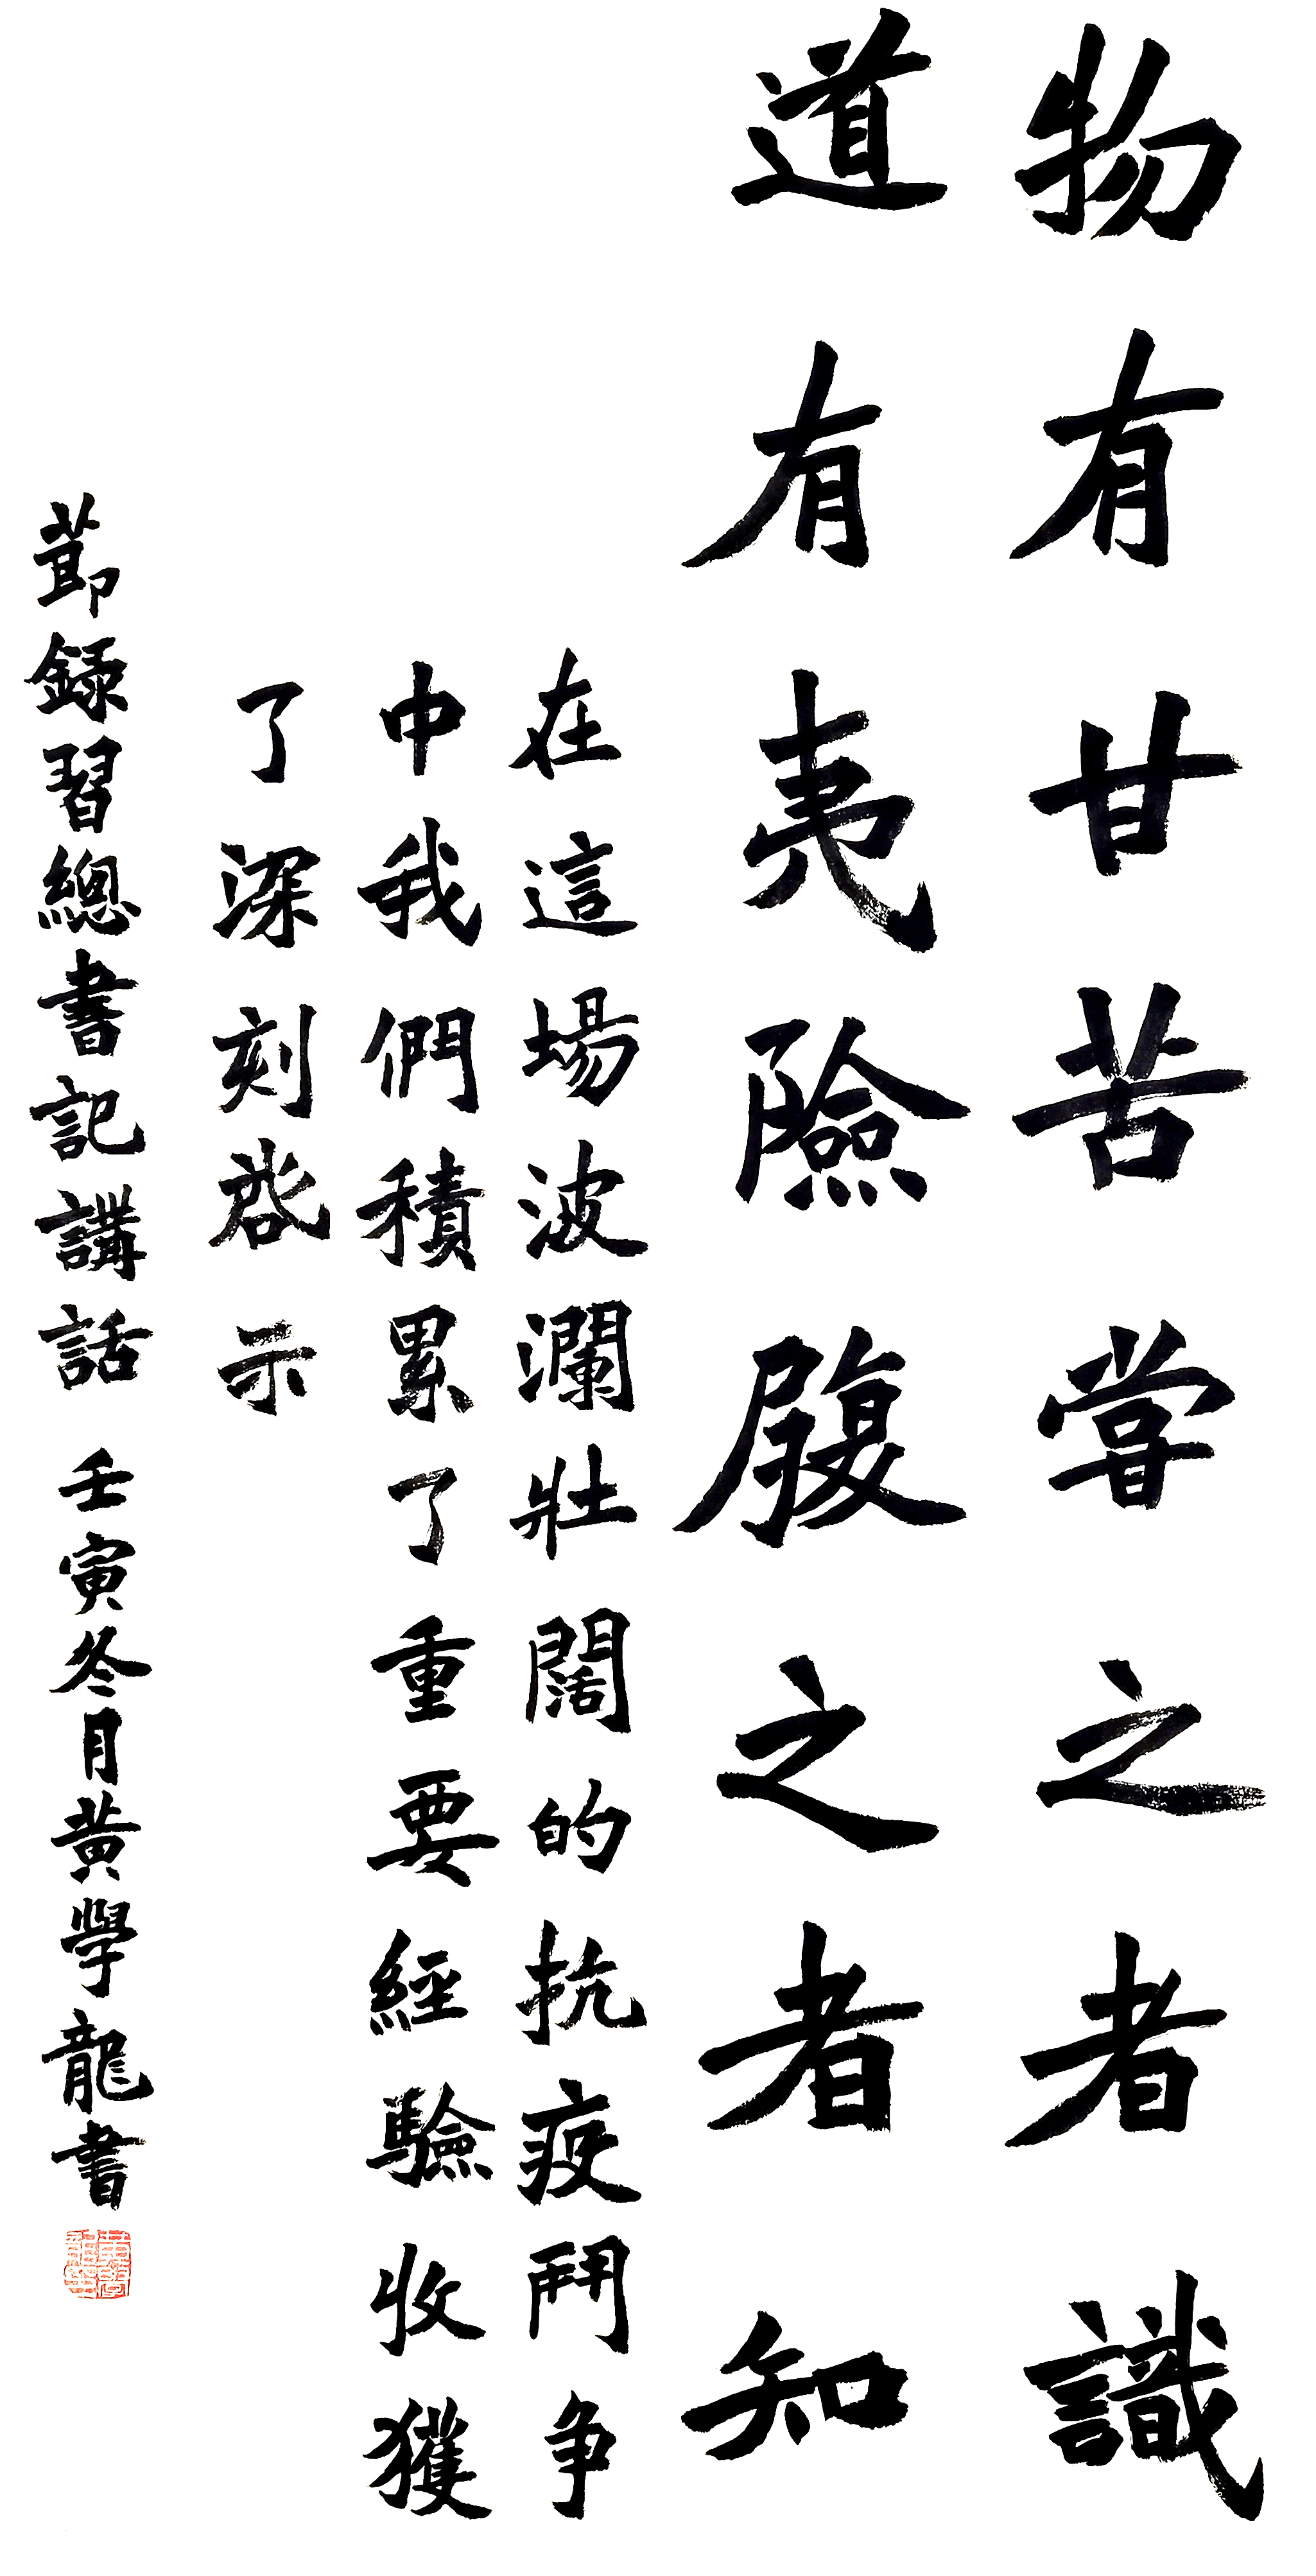 物有甘苦嘗之者識
道有夷險履之者知
在這場波瀾壯闊的抗疫鬥争
中我們積累了重要經驗收獲
了深刻啓示
節錄習總書記講話 壬寅冬月黄學龍書